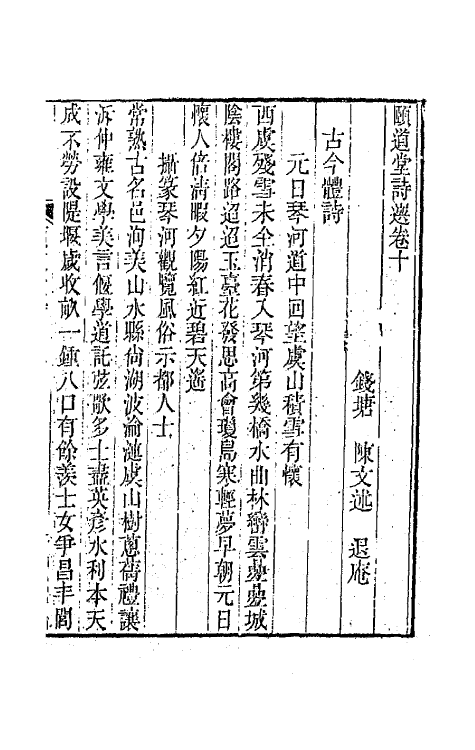 頤道堂詩選卷十
錢塘 陳文述 退庵
古今體詩
元日琴河道中回望虞山積雪有懷
西虞殘雪未全消春入琴河第幾橋水曲林巒雲疊疊城
陰樓閣路迢迢玉臺花發思高會瓊島寒輕夢早朝元日
懷人倍清暇夕陽紅近碧天遙
攝篆琴河觀覽風俗示都人士
常熟古名邑洵美山水縣尚湖波淪漣虞山樹蔥蒨禮讓
泝仲雍文學美言偃學道託弦歌多士盡英彥水利本天
成不勞設隄堰歲收畝一鍾八口有餘羨士女爭昌丰閭